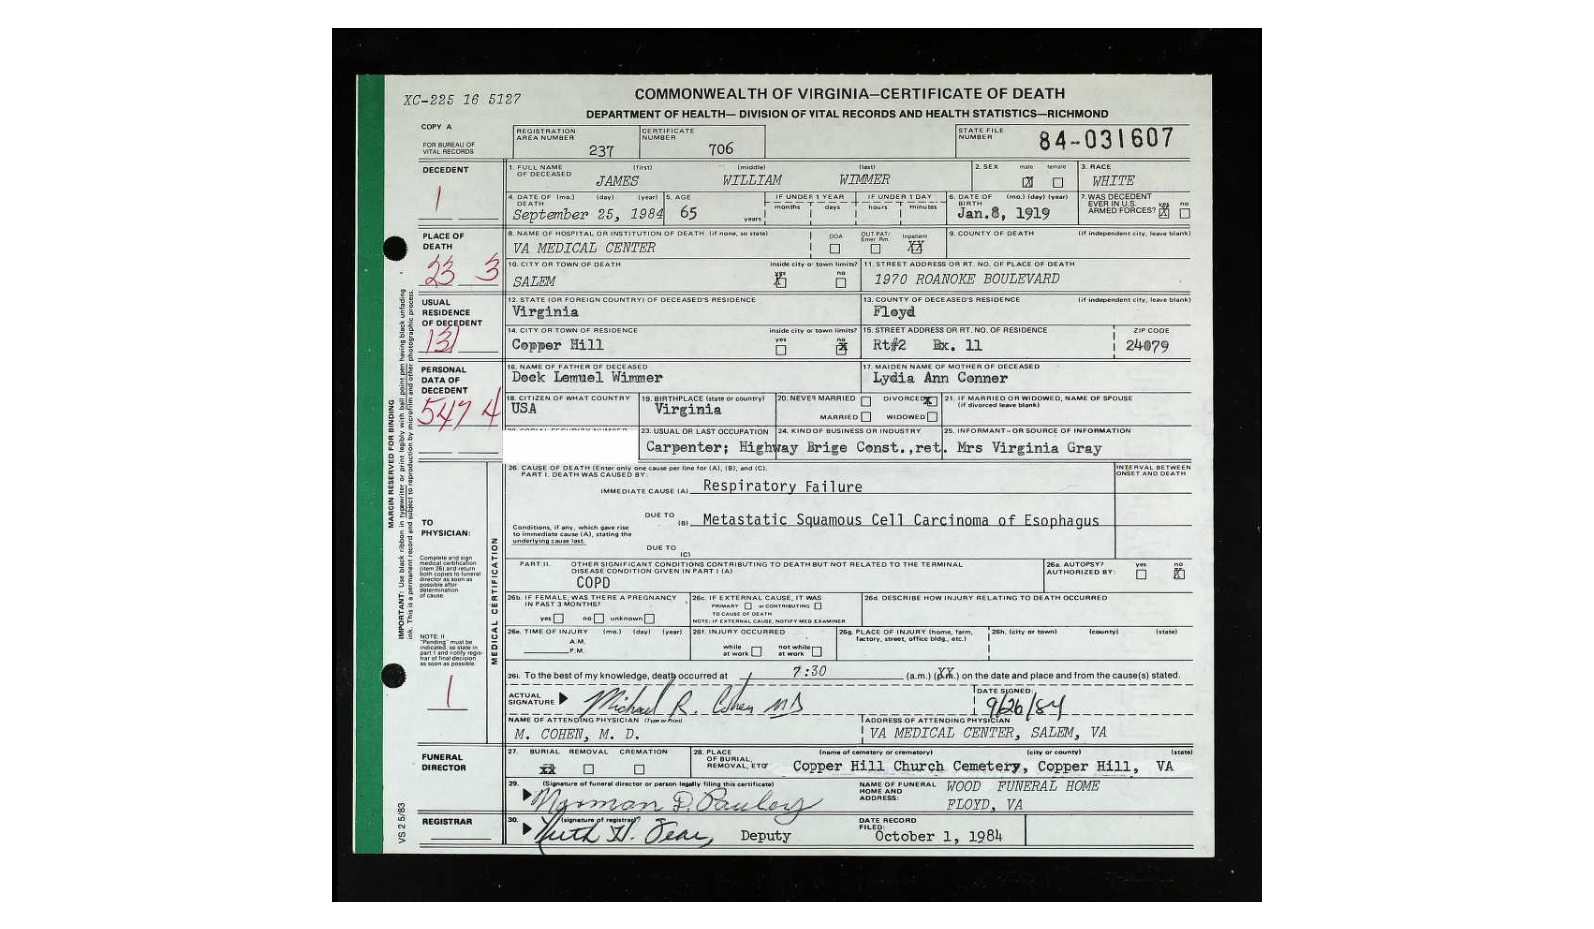 XC-225 16 5127
COMMONWEALTH OF VIRGINIA—CERTIFICATE OF DEATH
DEPARTMENT OF HEALTH— DIVISION OF VITAL RECORDS AND HEALTH STATISTICS—RICHMOND
COPY A
FOR BUREAU OF VITAL RECORDS
REGISTRATION AREA NUMBER 237
CERTIFICATE NUMBER 706
STATE FILE NUMBER 84-031607
DECEDENT
1
1. FULL NAME OF DECEASED (first) (middle) (last)
JAMES WILLIAM WIMMER
2. SEX male female
X
3. RACE
WHITE
4. DATE OF DEATH (mo.) (day) (year)
September 25, 1984
5. AGE
65 years
IF UNDER 1 YEAR months days
IF UNDER 1 DAY hours minutes
6. DATE OF BIRTH (mo.) (day) (year)
Jan.8, 1919
7. WAS DECEDENT EVER IN U.S. ARMED FORCES? yes no
X
PLACE OF DEATH
23 3
8. NAME OF HOSPITAL OR INSTITUTION OF DEATH (if none, so state)
VA MEDICAL CENTER
DOA OUT PAT/ Emer. Rm. Inpatient
XX
9. COUNTY OF DEATH (if independent city, leave blank)
10. CITY OR TOWN OF DEATH inside city or town limits? yes no
SALEM X
11. STREET ADDRESS OR RT. NO. OF PLACE OF DEATH
1970 ROANOKE BOULEVARD
USUAL RESIDENCE OF DECEDENT
131
12. STATE (OR FOREIGN COUNTRY) OF DECEASED'S RESIDENCE
Virginia
13. COUNTY OF DECEASED'S RESIDENCE (if independent city, leave blank)
Floyd
14. CITY OR TOWN OF RESIDENCE inside city or town limits? yes no
Copper Hill X
15. STREET ADDRESS OR RT. NO. OF RESIDENCE ZIP CODE
Rt#2 Bx. 11 24079
PERSONAL DATA OF DECEDENT
547 4
16. NAME OF FATHER OF DECEASED
Dock Lemuel Wimmer
17. MAIDEN NAME OF MOTHER OF DECEASED
Lydia Ann Conner
18. CITIZEN OF WHAT COUNTRY
USA
19. BIRTHPLACE (state or country)
Virginia
20. NEVER MARRIED DIVORCED X
MARRIED WIDOWED
21. IF MARRIED OR WIDOWED, NAME OF SPOUSE (if divorced leave blank)
23. USUAL OR LAST OCCUPATION
24. KIND OF BUSINESS OR INDUSTRY
25. INFORMANT—OR SOURCE OF INFORMATION
Carpenter; Highway Brige Const.,ret. Mrs Virginia Gray
MARGIN RESERVED FOR BINDING
IMPORTANT: Use black ribbon in typewriter or print legibly with ball point pen having black unfading
ink. This is a permanent record and subject to reproduction by microfilm and other photographic process.
TO PHYSICIAN:
Complete and sign medical certification (item 26) and return both copies to funeral director as soon as possible after determination of cause.
NOTE: If "Pending" must be indicated, so state in part 1 and notify registrar of final decision as soon as possible
1
MEDICAL CERTIFICATION
26. CAUSE OF DEATH (Enter only one cause per line for (A), (B), and (C).
PART I. DEATH WAS CAUSED BY:
INTERVAL BETWEEN ONSET AND DEATH
IMMEDIATE CAUSE (A) Respiratory Failure
DUE TO (B) Metastatic Squamous Cell Carcinoma of Esophagus
Conditions, if any, which gave rise to immediate cause (A), stating the underlying cause last.
DUE TO (C)
PART II. OTHER SIGNIFICANT CONDITIONS CONTRIBUTING TO DEATH BUT NOT RELATED TO THE TERMINAL DISEASE CONDITION GIVEN IN PART I (A)
COPD
26a. AUTOPSY? AUTHORIZED BY: yes no
X
26b. IF FEMALE, WAS THERE A PREGNANCY IN PAST 3 MONTHS?
yes no unknown
26c. IF EXTERNAL CAUSE, IT WAS
PRIMARY or CONTRIBUTING
TO CAUSE OF DEATH
NOTE: IF EXTERNAL CAUSE, NOTIFY MED EXAMINER
26d. DESCRIBE HOW INJURY RELATING TO DEATH OCCURRED
26e. TIME OF INJURY (mo.) (day) (year)
A.M.
P.M.
26f. INJURY OCCURRED
while at work not while at work
26g. PLACE OF INJURY (home, farm, factory, street, office bldg., etc.)
26h. (city or town) (county) (state)
26i. To the best of my knowledge, death occurred at 7:30 (a.m.) (p.m.) XX on the date and place and from the cause(s) stated.
ACTUAL SIGNATURE Michael R. Cohen MD
DATE SIGNED:
9/26/84
NAME OF ATTENDING PHYSICIAN (Type or Print)
M. COHEN, M. D.
ADDRESS OF ATTENDING PHYSICIAN
VA MEDICAL CENTER, SALEM, VA
FUNERAL DIRECTOR
27. BURIAL REMOVAL CREMATION
XX
28. PLACE OF BURIAL, REMOVAL, ETC. (name of cemetery or crematory) (city or county) (state)
Copper Hill Church Cemetery, Copper Hill, VA
29. (Signature of funeral director or person legally filing this certificate)
Norman D. Pauley
NAME OF FUNERAL HOME AND ADDRESS:
WOOD FUNERAL HOME
FLOYD, VA
REGISTRAR
30. (signature of registrar)
Deputy
DATE RECORD FILED:
October 1, 1984
VS 2 5/83